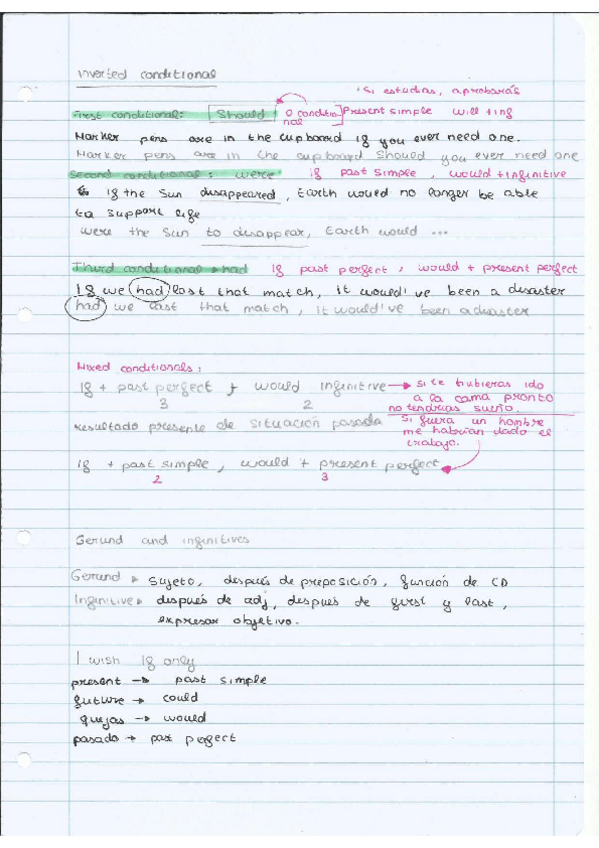 Inverted conditional
* Si estudias, aprobarás
First conditional: Should 0 conditional Present simple will + ing
Marker pens are in the cupboard if you ever need one.
Marker pens are in the cupboard should you ever need one
Second conditional: were if past simple, would + infinitive
if the Sun disappeared, Earth would no longer be able
to support life
Were the Sun to disappear, Earth would ...
Third conditional → had If past perfect, would + present perfect
If we had lost that match, it would've been a disaster
had we lost that match, it would've been a disaster
Mixed conditionals:
If + past perfect + would infinitive → si te hubieras ido
3 2 a la cama pronto
no tendrías sueño.
resultado presente de situación pasada Si fuera un hombre
me habrían dado el
trabajo.
if + past simple, would + present perfect
2 3
Gerund and infinitives
Gerund → sujeto, después de preposición, función de CD
Infinitive → después de adj, después de first y last,
expresar objetivo.
I wish If only
present → past simple
future → could
quejas → would
pasado → past perfect